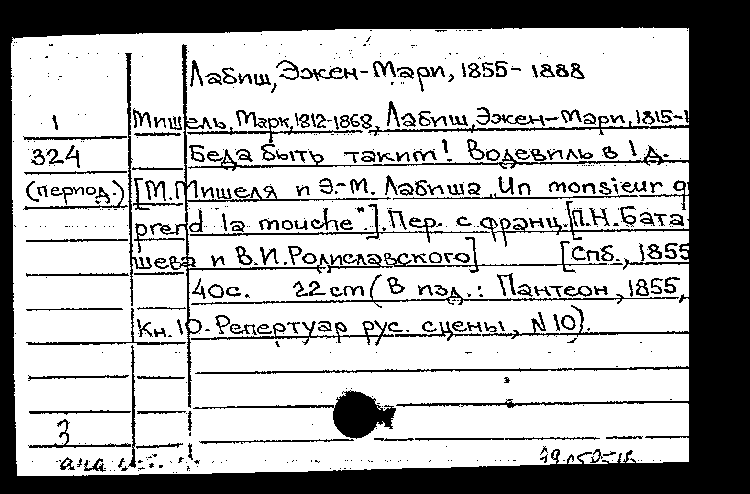 Лабиш, Эжен-Мари, 1855-1888
1 Мишель, Марк, 1812-1868, Лабиш, Эжен-Мари, 1815-1
324 Беда быть таким! Водевиль в 1 д.
(период.) [М. Мишеля и Э.-М. Лабиша „Un monsieur q
prend la mouche"]. Пер. с франц. [П.Н. Бата-
шева и В.И. Родиславского] [Спб., 1855
40с. 22 cm (В изд.: Пантеон, 1855,
Кн. 10. Репертуар рус. сцены, N 10).
3